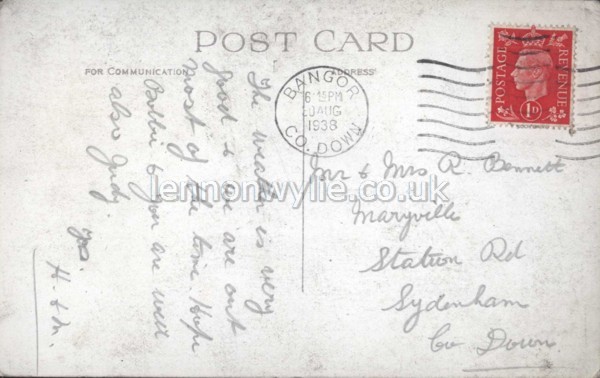 POST CARD
FOR COMMUNICATION
ADDRESS
BANGOR
6-15PM
20 AUG
1938
CO. DOWN
POSTAGE
REVENUE
1D
The weather is very
good & we are out
most of the time. Hope
Bobbie & you are well
also Judy.
H. & M.
Mr & Mrs R. Bennett
Maryville
Station Rd
Sydenham
Co Down
lennonwylie.co.uk